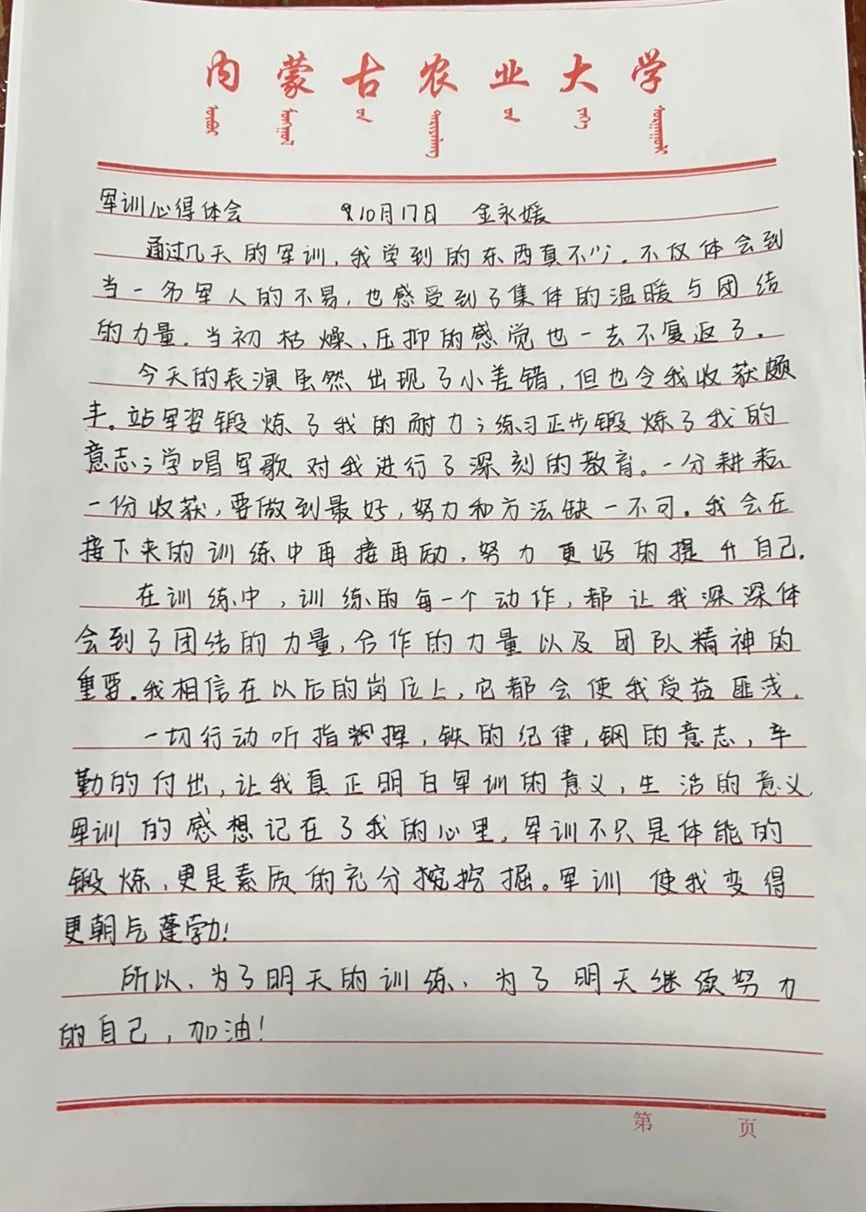 内蒙古农业大学
军训心得体会 10月17日 金永媛
通过几天的军训，我学到的东西真不少。不仅体会到
当一名军人的不易，也感受到了集体的温暖与团结
的力量。当初枯燥、压抑的感觉也一去不复返了。
今天的表演虽然出现了小差错，但也令我收获颇
丰。站军姿锻炼了我的耐力；练习正步锻炼了我的
意志；学唱军歌对我进行了深刻的教育。一分耕耘
一份收获，要做到最好，努力和方法缺一不可。我会在
接下来的训练中再接再励，努力更好的提升自己。
在训练中，训练的每一个动作，都让我深深体
会到了团结的力量，合作的力量以及团队精神的
重要。我相信在以后的岗位上，它都会使我受益匪浅。
一切行动听指挥，铁的纪律，钢的意志，辛
勤的付出，让我真正明白军训的意义，生活的意义
军训的感想记在了我的心里，军训不只是体能的
锻炼，更是素质的充分挖掘。军训使我变得
更朝气蓬勃！
所以，为了明天的训练、为了明天继续努力
的自己，加油！
第 页